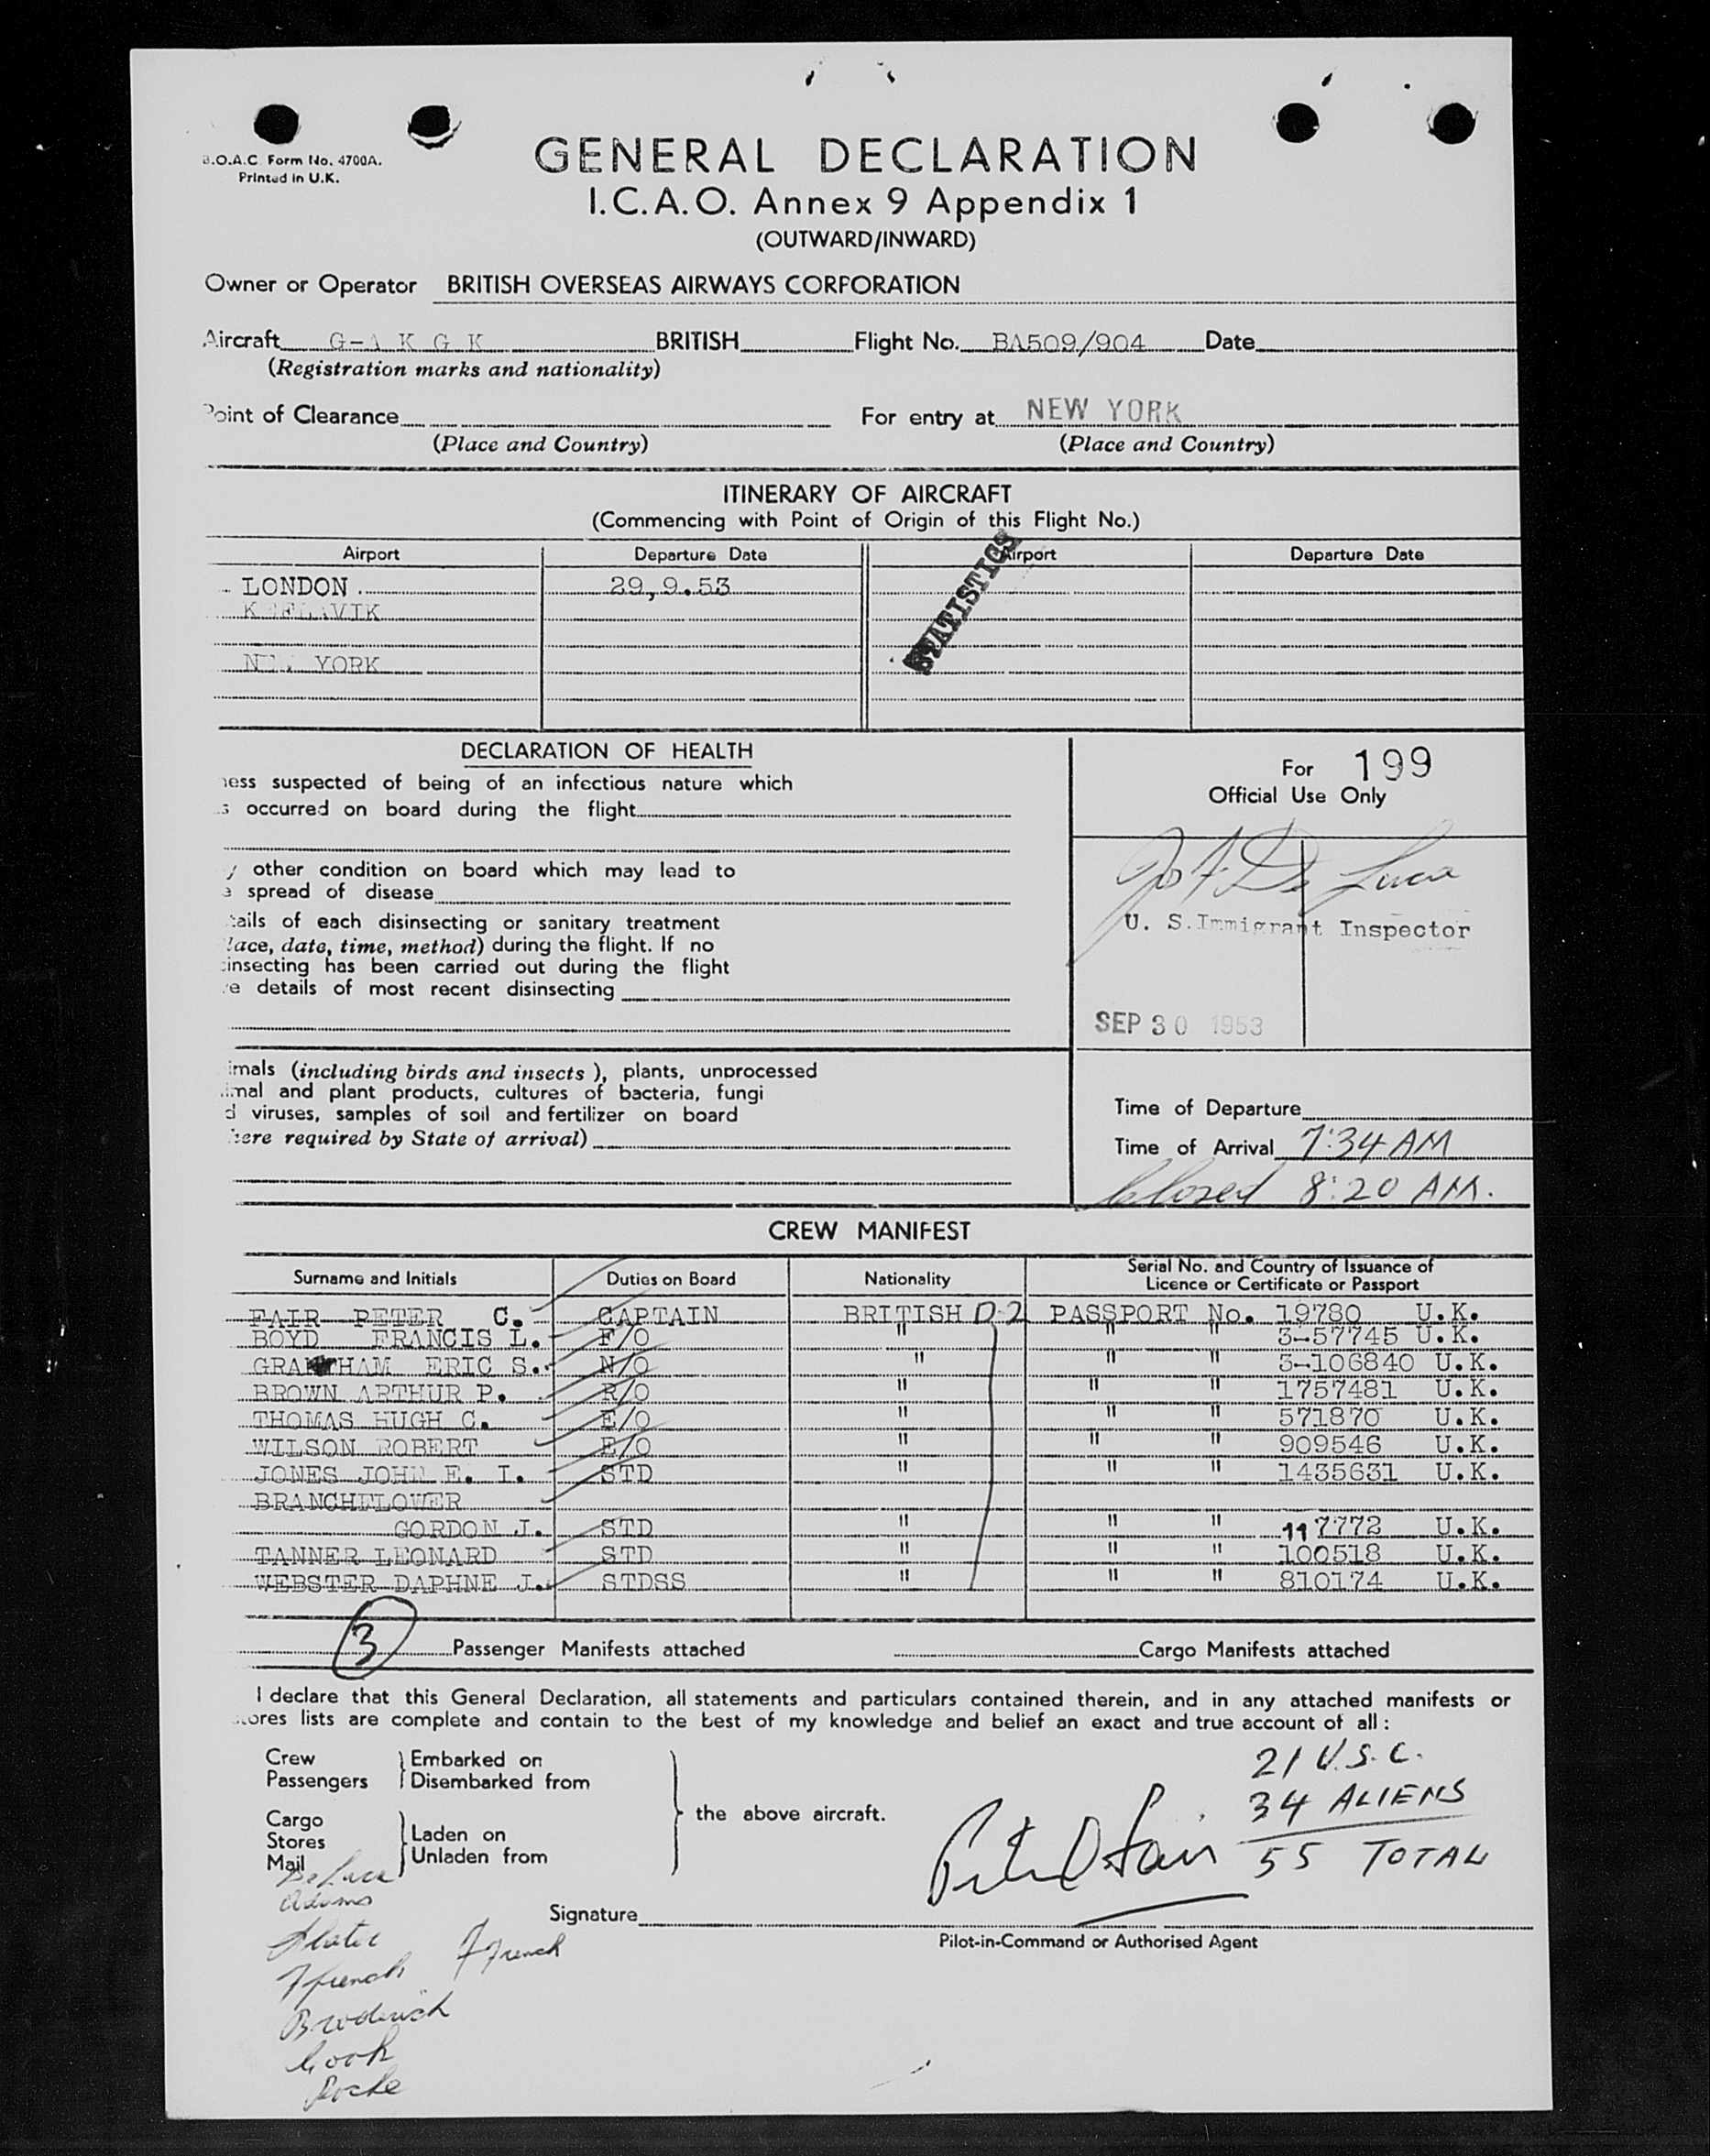 B.O.A.C. Form No. 4700A.
Printed in U.K.
GENERAL DECLARATION
I.C.A.O. Annex 9 Appendix 1
(OUTWARD/INWARD)
Owner or Operator BRITISH OVERSEAS AIRWAYS CORPORATION
Aircraft G-A K G K BRITISH Flight No. BA509/904 Date
(Registration marks and nationality)
Point of Clearance For entry at NEW YORK
(Place and Country) (Place and Country)
ITINERARY OF AIRCRAFT
(Commencing with Point of Origin of this Flight No.)
Airport Departure Date Airport Departure Date
STATISTICS
LONDON 29,9.53
KEFLAVIK
NEW YORK
DECLARATION OF HEALTH
For 199
Official Use Only
ness suspected of being of an infectious nature which
s occurred on board during the flight
y other condition on board which may lead to
e spread of disease
tails of each disinsecting or sanitary treatment
lace, date, time, method) during the flight. If no
insecting has been carried out during the flight
e details of most recent disinsecting
De Luca
U. S. Immigrant Inspector
SEP 30 1953
imals (including birds and insects), plants, unprocessed
imal and plant products, cultures of bacteria, fungi
d viruses, samples of soil and fertilizer on board
here required by State of arrival)
Time of Departure
Time of Arrival 7:34 AM
Closed 8:20 AM.
CREW MANIFEST
Surname and Initials Duties on Board Nationality Serial No. and Country of Issuance of Licence or Certificate or Passport
FAIR PETER C. CAPTAIN BRITISH D-2 PASSPORT No. 19780 U.K.
BOYD FRANCIS L. F/O " " " 3-57745 U.K.
GRANTHAM ERIC S. N/O " " " 3-106840 U.K.
BROWN ARTHUR P. R/O " " " 1757481 U.K.
THOMAS HUGH C. E/O " " " 571870 U.K.
WILSON ROBERT E/O " " " 909546 U.K.
JONES JOHN E. I. STD " " " 1435631 U.K.
BRANCHFLOWER
GORDON J. STD " " " 117772 U.K.
TANNER LEONARD STD " " " 100518 U.K.
WEBSTER DAPHNE J. STDSS " " " 810174 U.K.
3 Passenger Manifests attached Cargo Manifests attached
I declare that this General Declaration, all statements and particulars contained therein, and in any attached manifests or
tores lists are complete and contain to the best of my knowledge and belief an exact and true account of all :
Crew Embarked on
Passengers Disembarked from
Cargo
Stores Laden on
Mail Unladen from
the above aircraft.
21 U.S.C.
34 ALIENS
55 TOTAL
De Luca
Adams
Slater
French French
Broderick
Cook
Locke
Signature
Pilot-in-Command or Authorised Agent